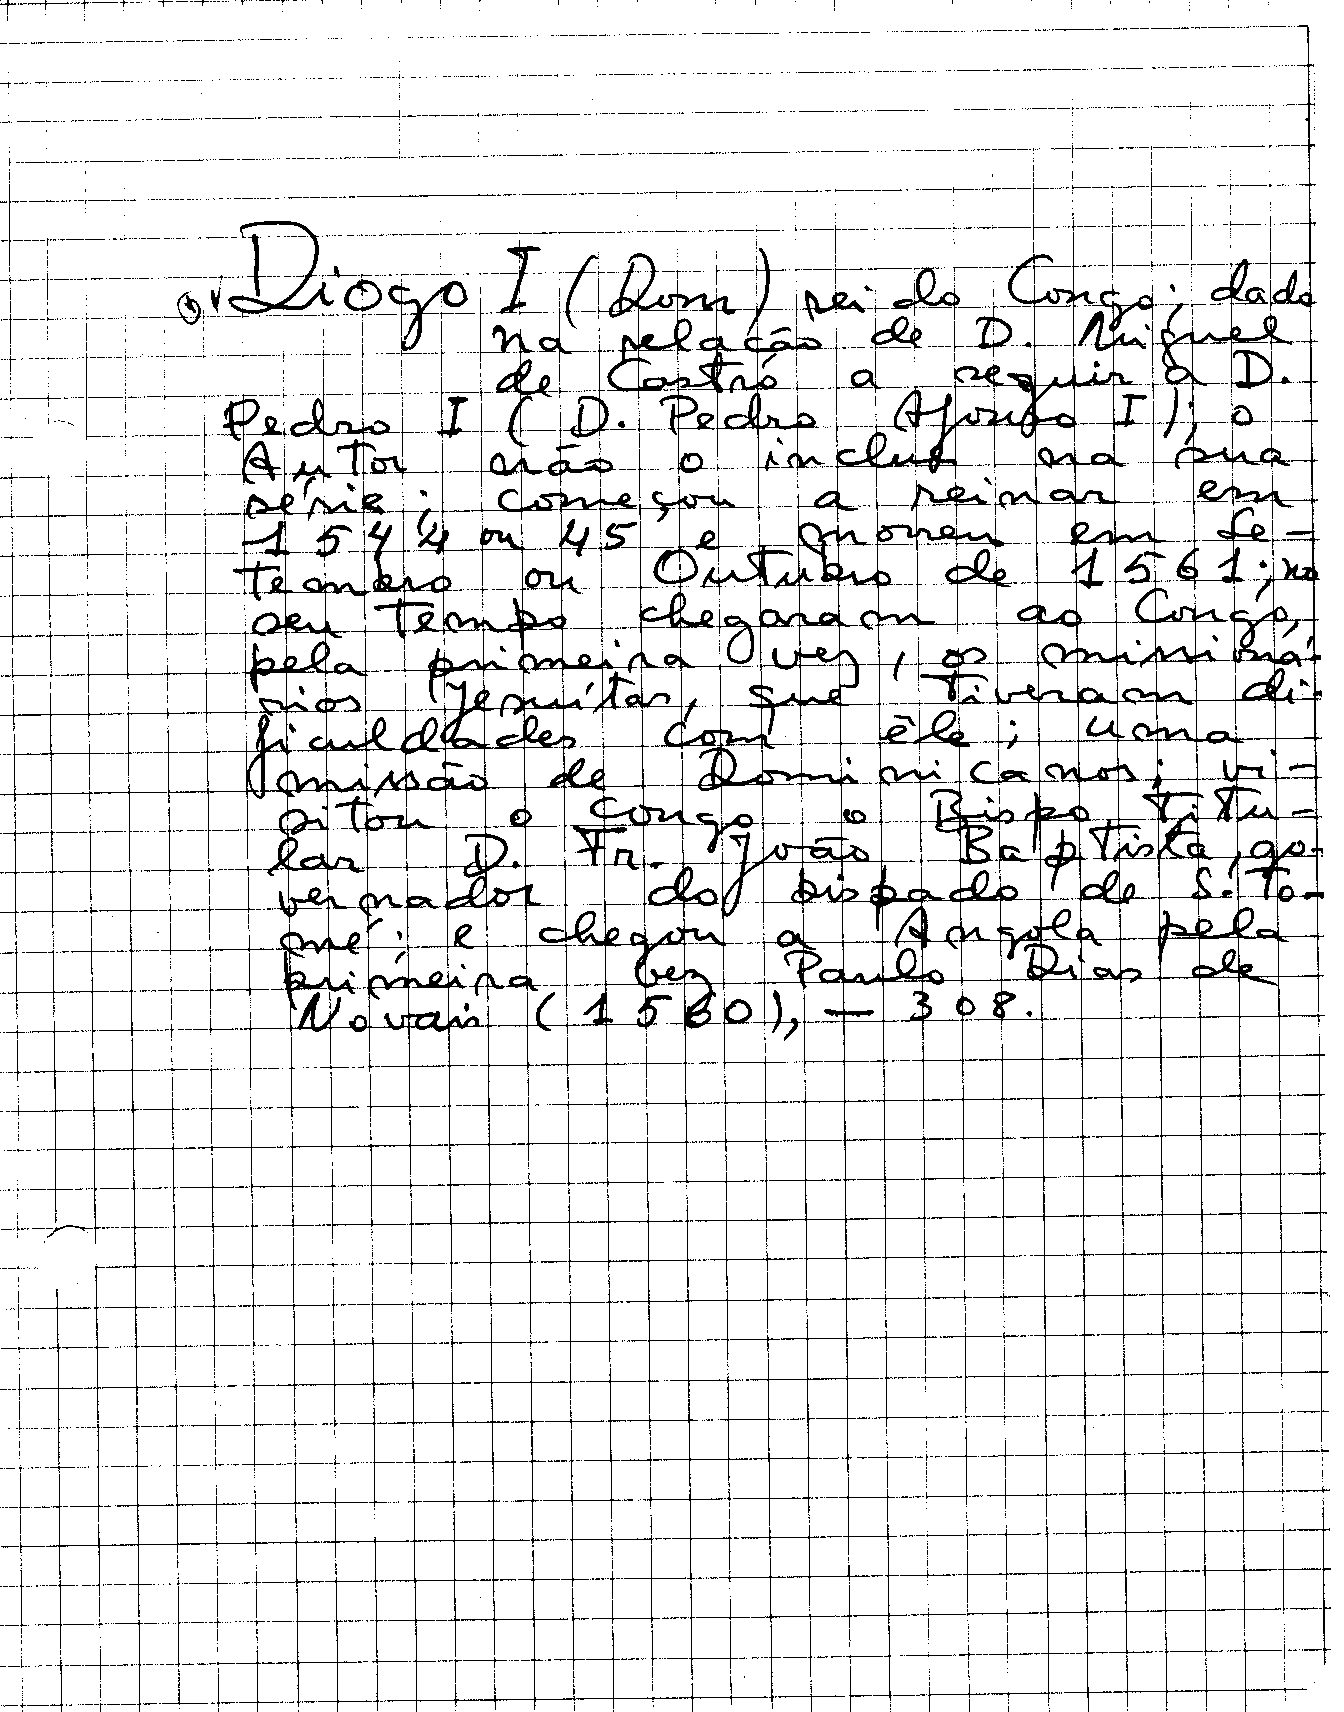 Diogo I (Dom) rei do Congo; dado
na relação de D. Miguel
de Castro a seguir a D.
Pedro I (D. Pedro Afonso I); o
Autor não o inclue na sua
série; começou a reinar em
1544 ou 45 e morreu em Se-
tembro ou Outubro de 1561; no
seu tempo chegaram ao Congo,
pela primeira vez, os missioná-
rios Jesuítas, que tiveram di-
ficuldades com êle; uma
missão de Dominicanos; vi-
sitou o Congo o Bispo titu-
lar D. Fr. João Baptista, go-
vernador do bispado de S. To-
mé; e chegou a Angola pela
primeira vez Paulo Dias de
Novais (1560), — 308.